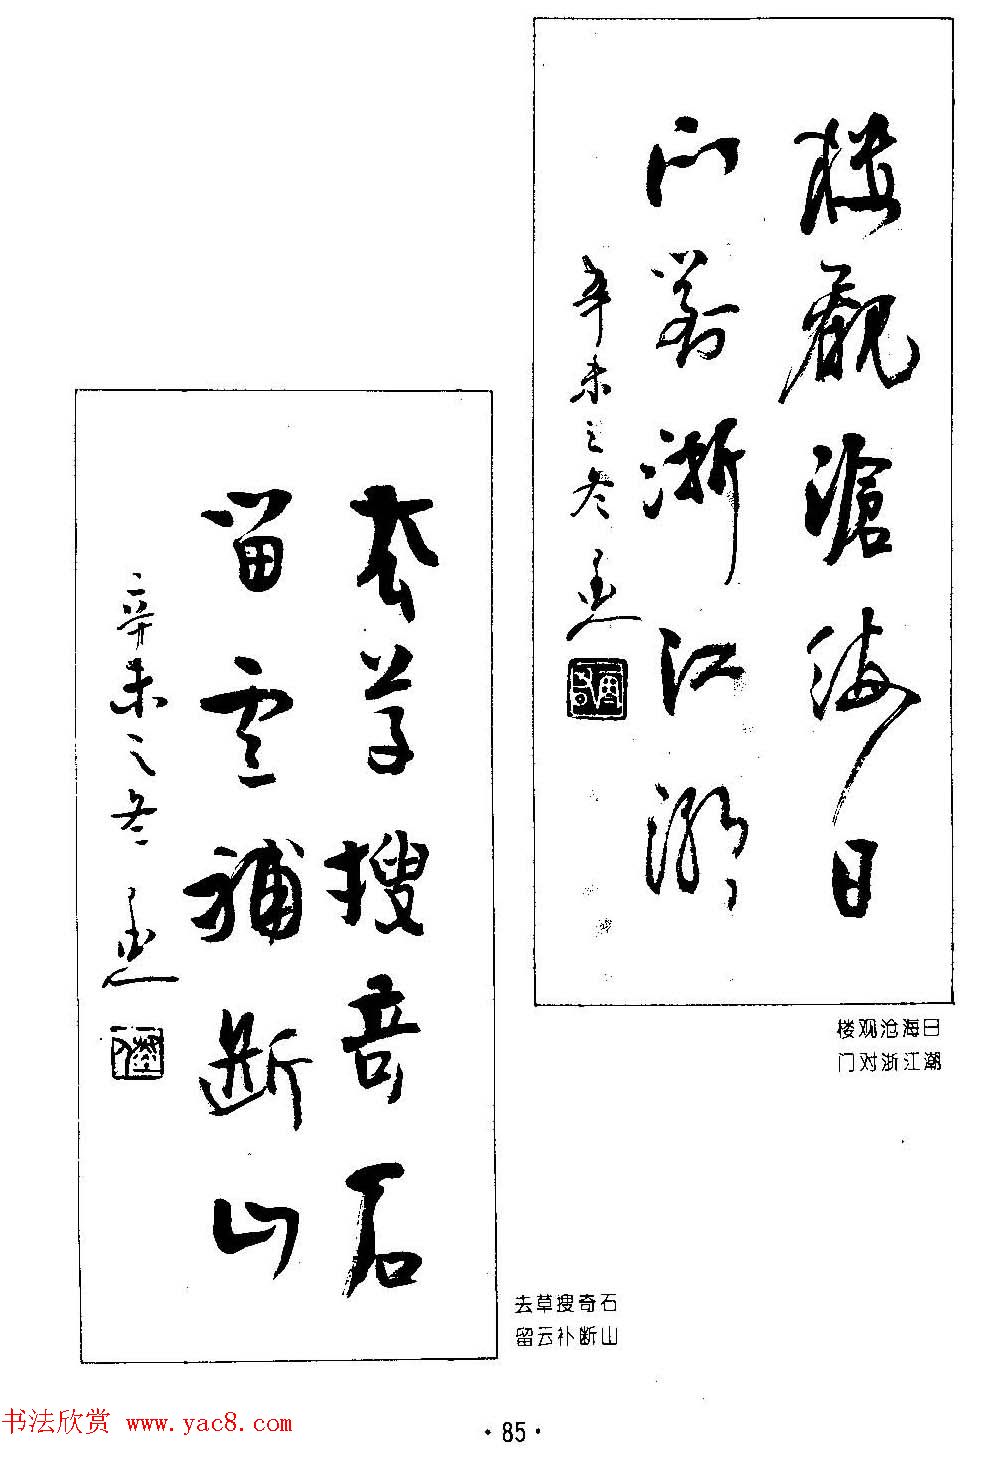 樓觀滄海日
门對浙江潮
辛未之冬
楼观沧海日
门对浙江潮
去草搜奇石
留雲補斷山
辛未之冬
去草搜奇石
留云补断山
书法欣赏 www.yac8.com
·85·